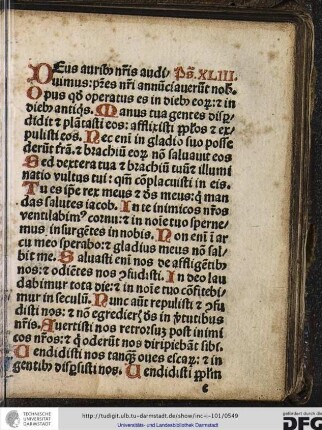 DEus aurib⁹ nr̄is audi⸗ Ps̄. XLIII.
uimus: pr̄es nr̄i annūciauerūt nob̄.
Opus qd̄ operatus es in dieb⁹ eoꝝ: ⁊ in
dieb⁹ antiq̄s. Manus tua gentes disp̱⸗
didit ⁊ plātasti eos: afflixisti pp̄los ⁊ ex⸗
pulisti eos. Nec eni in gladio suo posse
derūt tr̄ā. ⁊ brachiū eoꝝ nō saluauit eos
Sed dextera tua ⁊ brachiū tuū ⁊ illumi
natio vultus tui: qm̄ cōplacuisti in eis.
Tu es ip̄e rex meus ⁊ d̄s meus: q̄ man
das salutes iacob. In te inimicos nr̄os
ventilabim⁹ cornu: ⁊ in noīe tuo sperne⸗
mus insurgētes in nobis. Non enī ī ar
cu meo sperabo: ⁊ gladius meus nō sal⸗
bit me. Saluasti enī nos de affligētib⁹
nos: ⁊ odiētes nos ꝯfudisti. In deo lau
dabimur tota die: ⁊ in noīe tuo cōfitebi⸗
mur in seculū. Nunc aūt repulisti ⁊ ꝯfu
disti nos: ⁊ nō egredier⸗ d̄s in v̓tutibus
nr̄is. Auertisti nos retrorsuꝫ post inimi
cos nr̄os: ⁊ q̄ oderūt nos diripiebāt sibi.
Uendidisti nos tanq̄ꝫ oues escaꝝ: ⁊ in
gentib⁹ disp̱sisti nos. Uendidisti pp̄lm̄
c
TECHNISCHE
UNIVERSITÄT
DARMSTADT
http://tudigit.ulb.tu-darmstadt.de/show/inc-i-101/0549
Universitäts- und Landesbibliothek Darmstadt
gefördert durch die
DFG